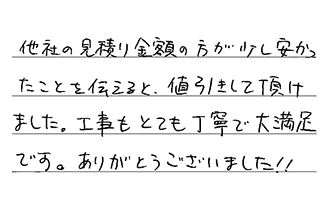 他社の見積り金額の方が少し安かっ
たことを伝えると、値引きして頂け
ました。工事もとても丁寧で大満足
です。ありがとうございました!!